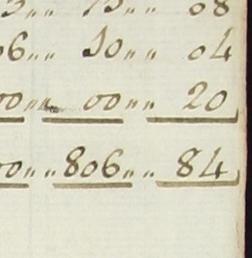 5„„ 15„„ 08
06„„ 10„„ 04
00„„ 00„„ 20
00„„ 806„„ 84